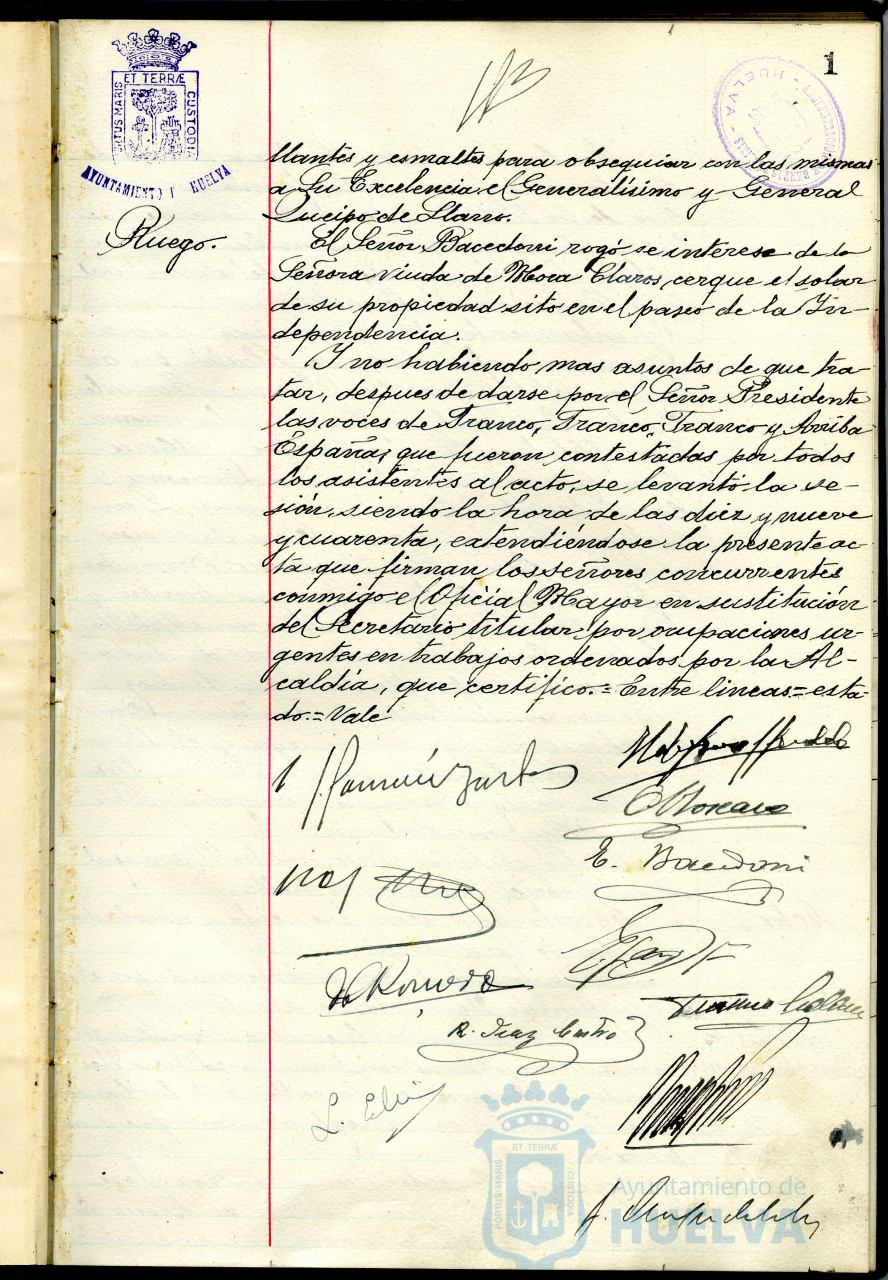 1
PORTUS MARIS ET TERRÆ CUSTODIA
AYUNTAMIENTO HUELVA
HUELVA
llantes y esmaltes para obsequiar con las mismas
a Su Excelencia el Generalísimo y General
Queipo de Llano.
Ruego.
El Señor Bacedoni rogó se interese de la
Señora viuda de Mora Claros, cerque el solar
de su propiedad sito en el paseo de la In-
dependencia.
Y no habiendo mas asuntos de que tra-
tar, despues de darse por el Señor Presidente
las voces de Franco, Franco, Franco y Arriba
España, que fueron contestadas por todos
los asistentes al acto, se levantó la se-
sión, siendo la hora de las diez y nueve
y cuarenta, extendiéndose la presente ac-
ta que firman los señores concurrentes
conmigo el Oficial Mayor en sustitución
del Secretario titular por ocupaciones ur-
gentes en trabajos ordenados por la Al-
caldía, que certifico.=Entre lineas=esta-
do.=Vale
E. Bacedoni
Romero
R. Diaz Castro
PORTUS MARIS ET TERRÆ CUSTODIA
Ayuntamiento de
HUELVA